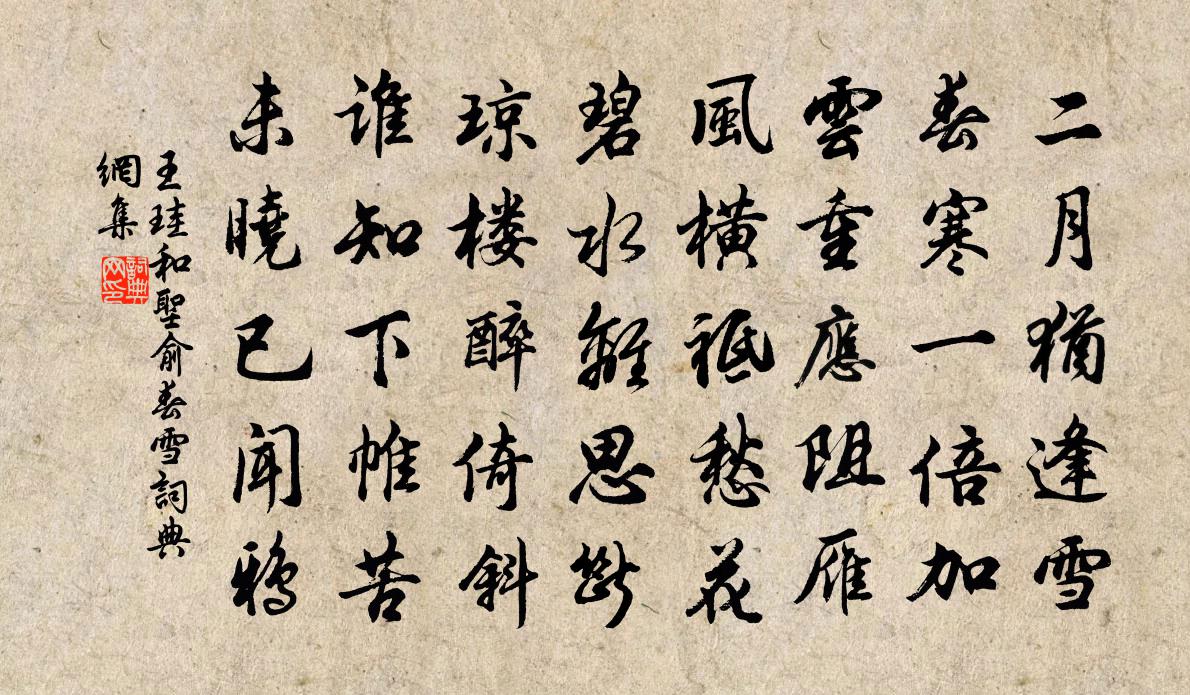 二月猶逢雪
春寒一倍加
雲重應阻雁
風橫祗愁花
碧水難思斷
琼楼醉倚斜
谁知下帷苦
未曉已聞鴉
王珪和聖俞春雪詞典
網集
詞典
网印